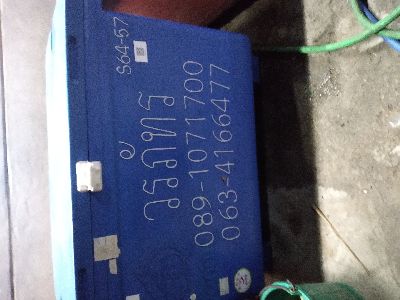 S64-57
วรภัทร
089-1071700
063-4166477